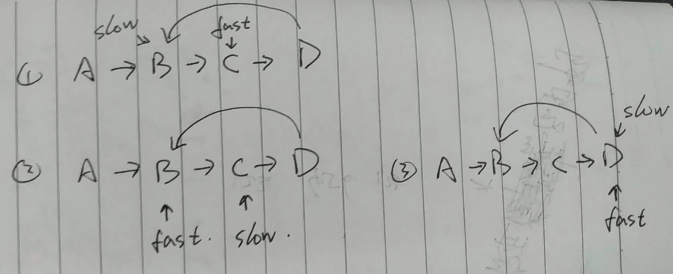 slow fast
① A → B → C → D
② A → B → C → D
fast. slow.
slow
③ A → B → C → D
fast